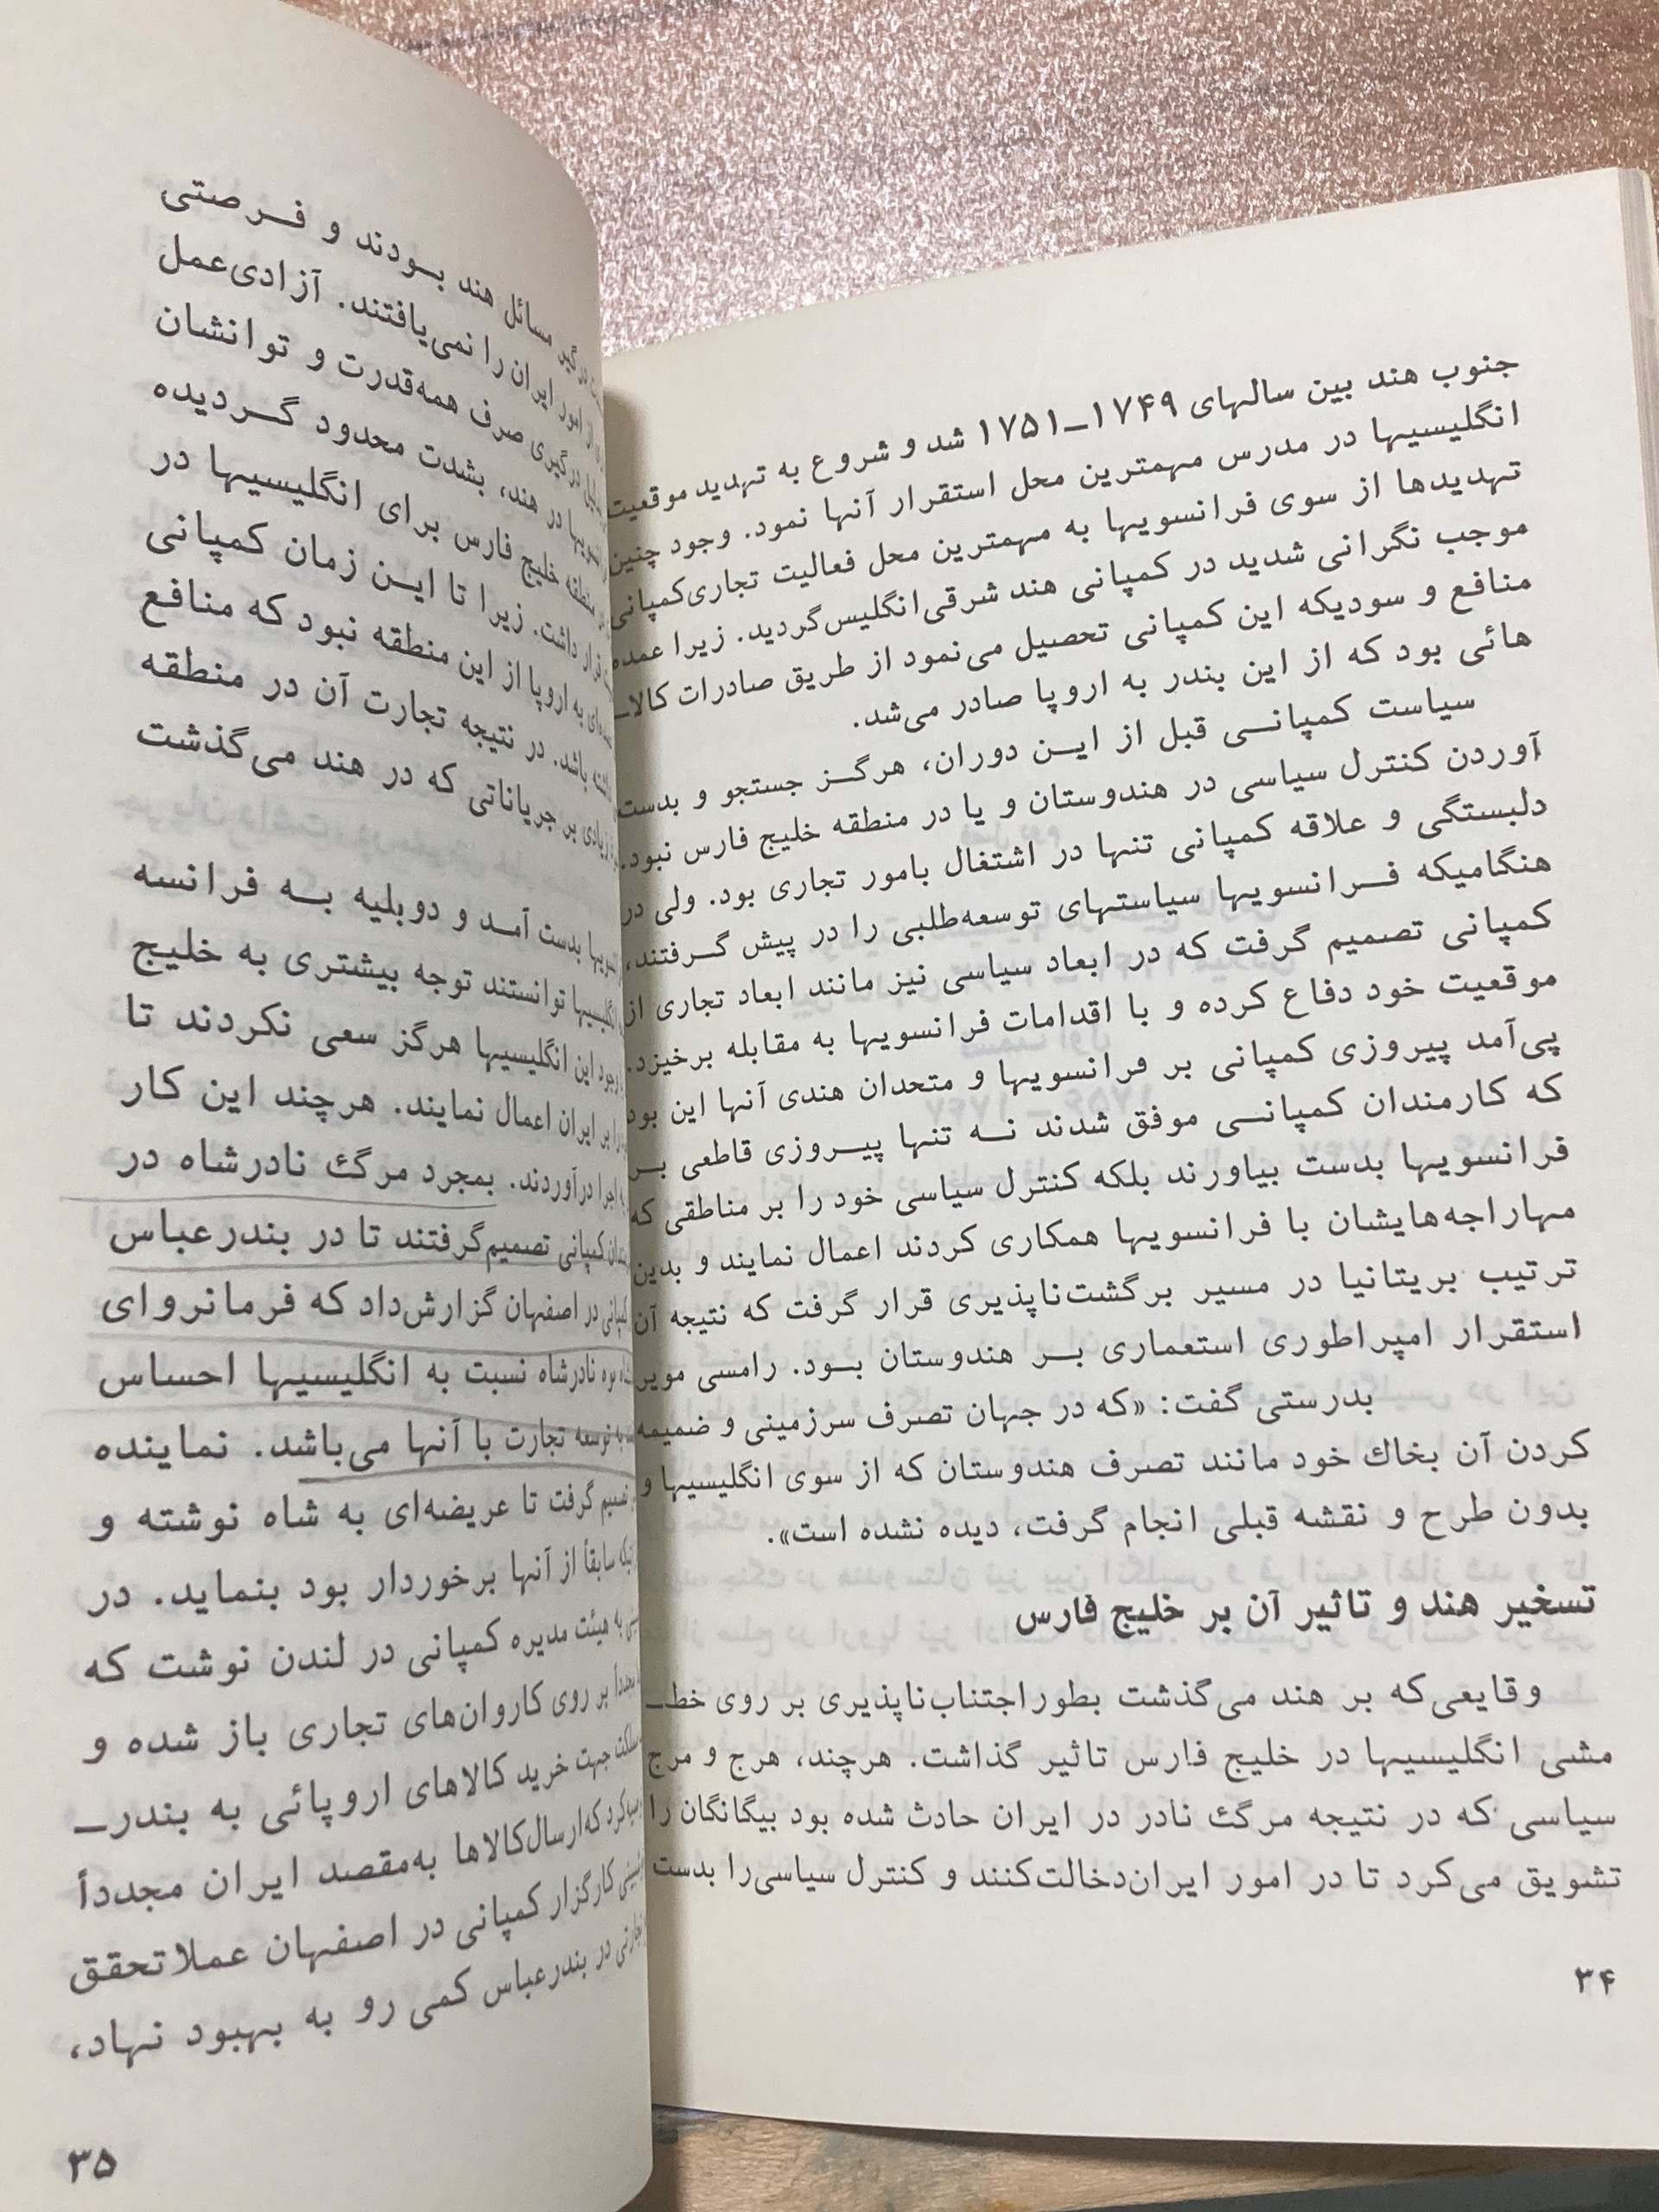 جنوب هند بین سالهای ۱۷۴۹ـ۱۷۵۱ شد و شروع به تهدید موقعیت
انگلیسیها در مدرس مهمترین محل استقرار آنها نمود. وجود چنین
تهدیدها از سوی فرانسویها به مهمترین محل فعالیت تجاری‌کمپانی
موجب نگرانی شدید در کمپانی هند شرقی‌انگلیس‌گردید. زیرا عمده
منافع و سودیکه این کمپانی تحصیل می‌نمود از طریق صادرات کالاـ
هائی بود که از این بندر به اروپا صادر می‌شد.
سیاست کمپانی قبل از این دوران، هرگز جستجو و بدست
آوردن کنترل سیاسی در هندوستان و یا در منطقه خلیج فارس نبود.
دلبستگی و علاقه کمپانی تنها در اشتغال بامور تجاری بود. ولی در
هنگامیکه فرانسویها سیاستهای توسعه‌طلبی را در پیش گرفتند،
کمپانی تصمیم گرفت که در ابعاد سیاسی نیز مانند ابعاد تجاری از
موقعیت خود دفاع کرده و با اقدامات فرانسویها به مقابله برخیزد.
پی‌آمد پیروزی کمپانی بر فرانسویها و متحدان هندی آنها این بود
که کارمندان کمپانی موفق شدند نه تنها پیروزی قاطعی بر
فرانسویها بدست بیاورند بلکه کنترل سیاسی خود را بر مناطقی که
مهاراجه‌هایشان با فرانسویها همکاری کردند اعمال نمایند و بدین
ترتیب بریتانیا در مسیر برگشت‌ناپذیری قرار گرفت که نتیجه آن
استقرار امپراطوری استعماری بر هندوستان بود. رامسی مویر
بدرستی گفت: «که در جهان تصرف سرزمینی و ضمیمه
کردن آن بخاك خود مانند تصرف هندوستان که از سوی انگلیسیها و
بدون طرح و نقشه قبلی انجام گرفت، دیده نشده است».
تسخیر هند و تاثیر آن بر خلیج فارس
وقایعی‌که بر هند می‌گذشت بطوراجتناب‌ناپذیری بر روی خطـ
مشی انگلیسیها در خلیج فارس تاثیر گذاشت. هرچند، هرج و مرج
سیاسی که در نتیجه مرگ نادر در ایران حادث شده بود بیگانگان را
تشویق می‌کرد تا در امور ایران‌دخالت‌کنند و کنترل سیاسی‌را بدست
۳۴
درگیر مسائل هند بودند و فرصتی
از امور ایران را نمی‌یافتند. آزادی‌عمل
درگیری صرف همه‌قدرت و توانشان
در هند، بشدت محدود گردیده
منطقه خلیج فارس برای انگلیسیها در
قرار داشت. زیرا تا این زمان کمپانی
به اروپا از این منطقه نبود که منافع
باشد. در نتیجه تجارت آن در منطقه
زیادی بر جریاناتی که در هند می‌گذشت
بدست آمد و دوپلیه به فرانسه
انگلیسیها توانستند توجه بیشتری به خلیج
وجود این انگلیسیها هرگز سعی نکردند تا
را بر ایران اعمال نمایند. هرچند این کار
اجرا درآوردند. بمجرد مرگ نادرشاه در
کمپانی تصمیم‌گرفتند تا در بندرعباس
کمپانی در اصفهان گزارش‌داد که فرمانروای
نادرشاه نسبت به انگلیسیها احساس
به توسعه تجارت با آنها می‌باشد. نماینده
تصمیم گرفت تا عریضه‌ای به شاه نوشته و
سابقاً از آنها برخوردار بود بنماید. در
به هیئت مدیره کمپانی در لندن نوشت که
مجدداً بر روی کاروان‌های تجاری باز شده و
جهت خرید کالاهای اروپائی به بندرـ
که‌ارسال‌کالاها به‌مقصد ایران مجدداً
کارگزار کمپانی در اصفهان عملا تحقق
در بندرعباس کمی رو به بهبود نهاد،
۳۵